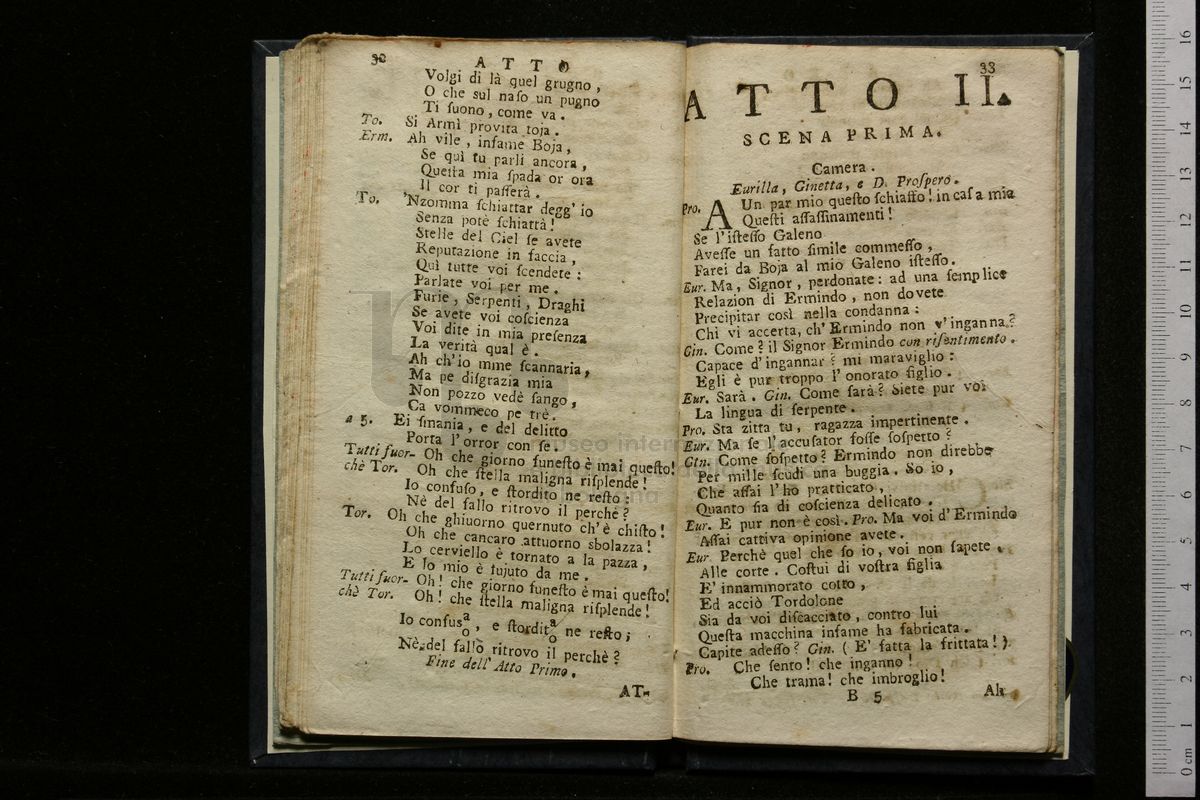 32 ATTO
Volgi di là quel grugno,
O che sul naſo un pugno
Ti ſuono, come va.
To. Si Armì provita toja.
Erm. Ah vile, infame Boja,
Se quì tu parli ancora,
Queſta mia ſpada or ora
Il cor ti paſſerà.
To. 'Nzomma ſchiattar degg' io
Senza potè ſchiattà!
Stelle del Ciel ſe avete
Reputazione in faccia,
Quì tutte voi ſcendete:
Parlate voi per me.
Furie, Serpenti, Draghi
Se avete voi coſcienza
Voi dite in mia preſenza
La verità qual è.
Ah ch'io mme ſcannaria,
Ma pe diſgrazia mia
Non pozzo vedè ſango,
Ca vommeco pe trè.
a 5. Ei ſmania, e del delitto
Porta l'orror con ſe.
Tutti fuor- Oh che giorno funeſto è mai queſto!
chè Tor. Oh che ſtella maligna riſplende!
Io confuſo, e ſtordito ne reſto:
Nè del fallo ritrovo il perchè?
Tor. Oh che ghiuorno quernuto ch'è chiſto!
Oh che cancaro attuorno sbolazza!
Lo cerviello è tornato a la pazza,
E lo mio è fujuto da me.
Tutti fuor- Oh! che giorno funeſto è mai queſto!
chè Tor. Oh! che ſtella maligna riſplende!
Io confus a/o, e ſtordit a/o ne reſto;
Nè del fallo ritrovo il perchè?
Fine dell' Atto Primo.
AT-
33
ATTO II.
SCENA PRIMA.
Camera.
Eurilla, Ginetta, e D. Proſpero.
Pro. A Un par mio queſto ſchiaffo! in caſa mia
Queſti aſſaſſinamenti!
Se l'iſteſſo Galeno
Aveſſe un fatto ſimile commeſſo,
Farei da Boja al mio Galeno iſteſſo.
Eur. Ma, Signor, perdonate: ad una ſemplice
Relazion di Ermindo, non dovete
Precipitar così nella condanna:
Chi vi accerta, ch'Ermindo non v'inganna?
Gin. Come? il Signor Ermindo con riſentimento.
Capace d'ingannar? mi maraviglio:
Egli è pur troppo l'onorato figlio.
Eur. Sarà. Gin. Come ſarà? Siete pur voi
La lingua di ſerpente.
Pro. Sta zitta tu, ragazza impertinente.
Eur. Ma ſe l'accuſator foſſe ſoſpetto?
Gin. Come ſoſpetto? Ermindo non direbbe
Per mille ſcudi una buggia. So io,
Che aſſai l'ho pratticato,
Quanto ſia di coſcienza delicato.
Eur. E pur non è così. Pro. Ma voi d'Ermindo
Aſſai cattiva opinione avete.
Eur. Perchè quel che ſo io, voi non ſapete.
Alle corte. Coſtui di voſtra figlia
E' innammorato cotto,
Ed acciò Tordolone
Sia da voi diſcacciato, contro lui
Queſta macchina infame ha fabricata.
Capite adeſſo? Gin. ( E' fatta la frittata! )
Pro. Che ſento! che inganno!
Che trama! che imbroglio!
B 5 Ah